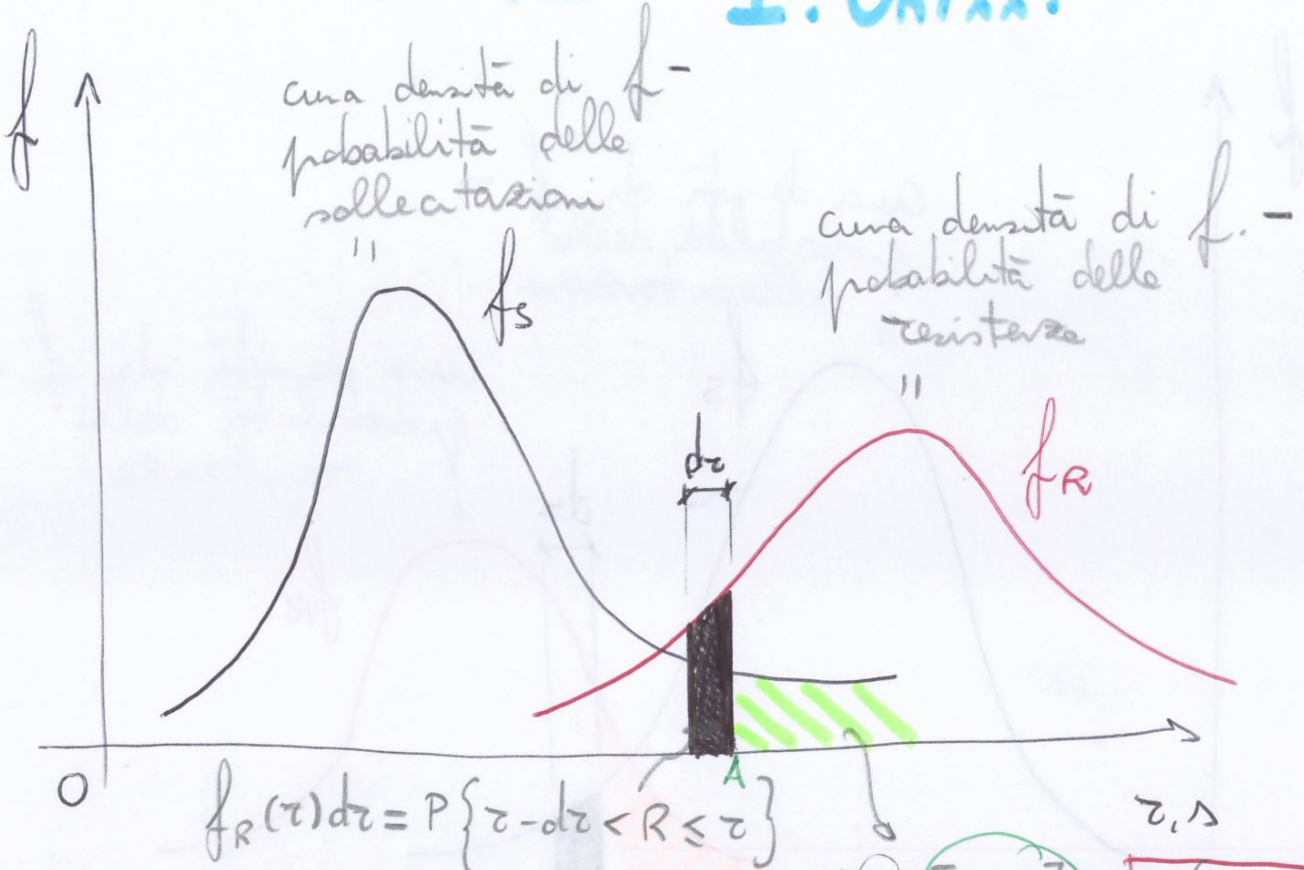 f
curva densità di f -
probabilità delle
sollecitazioni
"
f_S
curva densità di f. -
probabilità delle
resistenze
"
f_R
dr
O
A
f_R(r)dr = P{r-dr < R ≤ r}
r, s